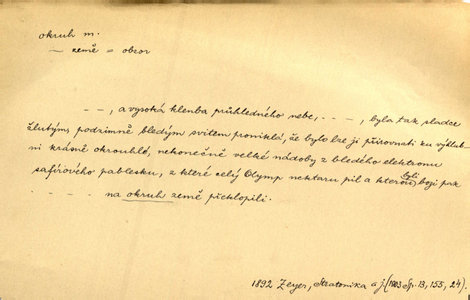 okruh m.
— země = obzor
– –, a vysoká klenba průhledného nebe, – – –, byla tak sladce
žlutým, podzimně bledým svitem proniklá, že bylo lze ji přirovnati ku výdub-
ni krásně okrouhlé, nekonečně velké nádoby z bledého elektronu
safírového pablesku, z které celý Olymp nektaru pil a kterou byli bozi pak
na okruh země překlopili.
1892 Zeyer, Stratonika a j. (1903 Sp. 13, 155, 24).